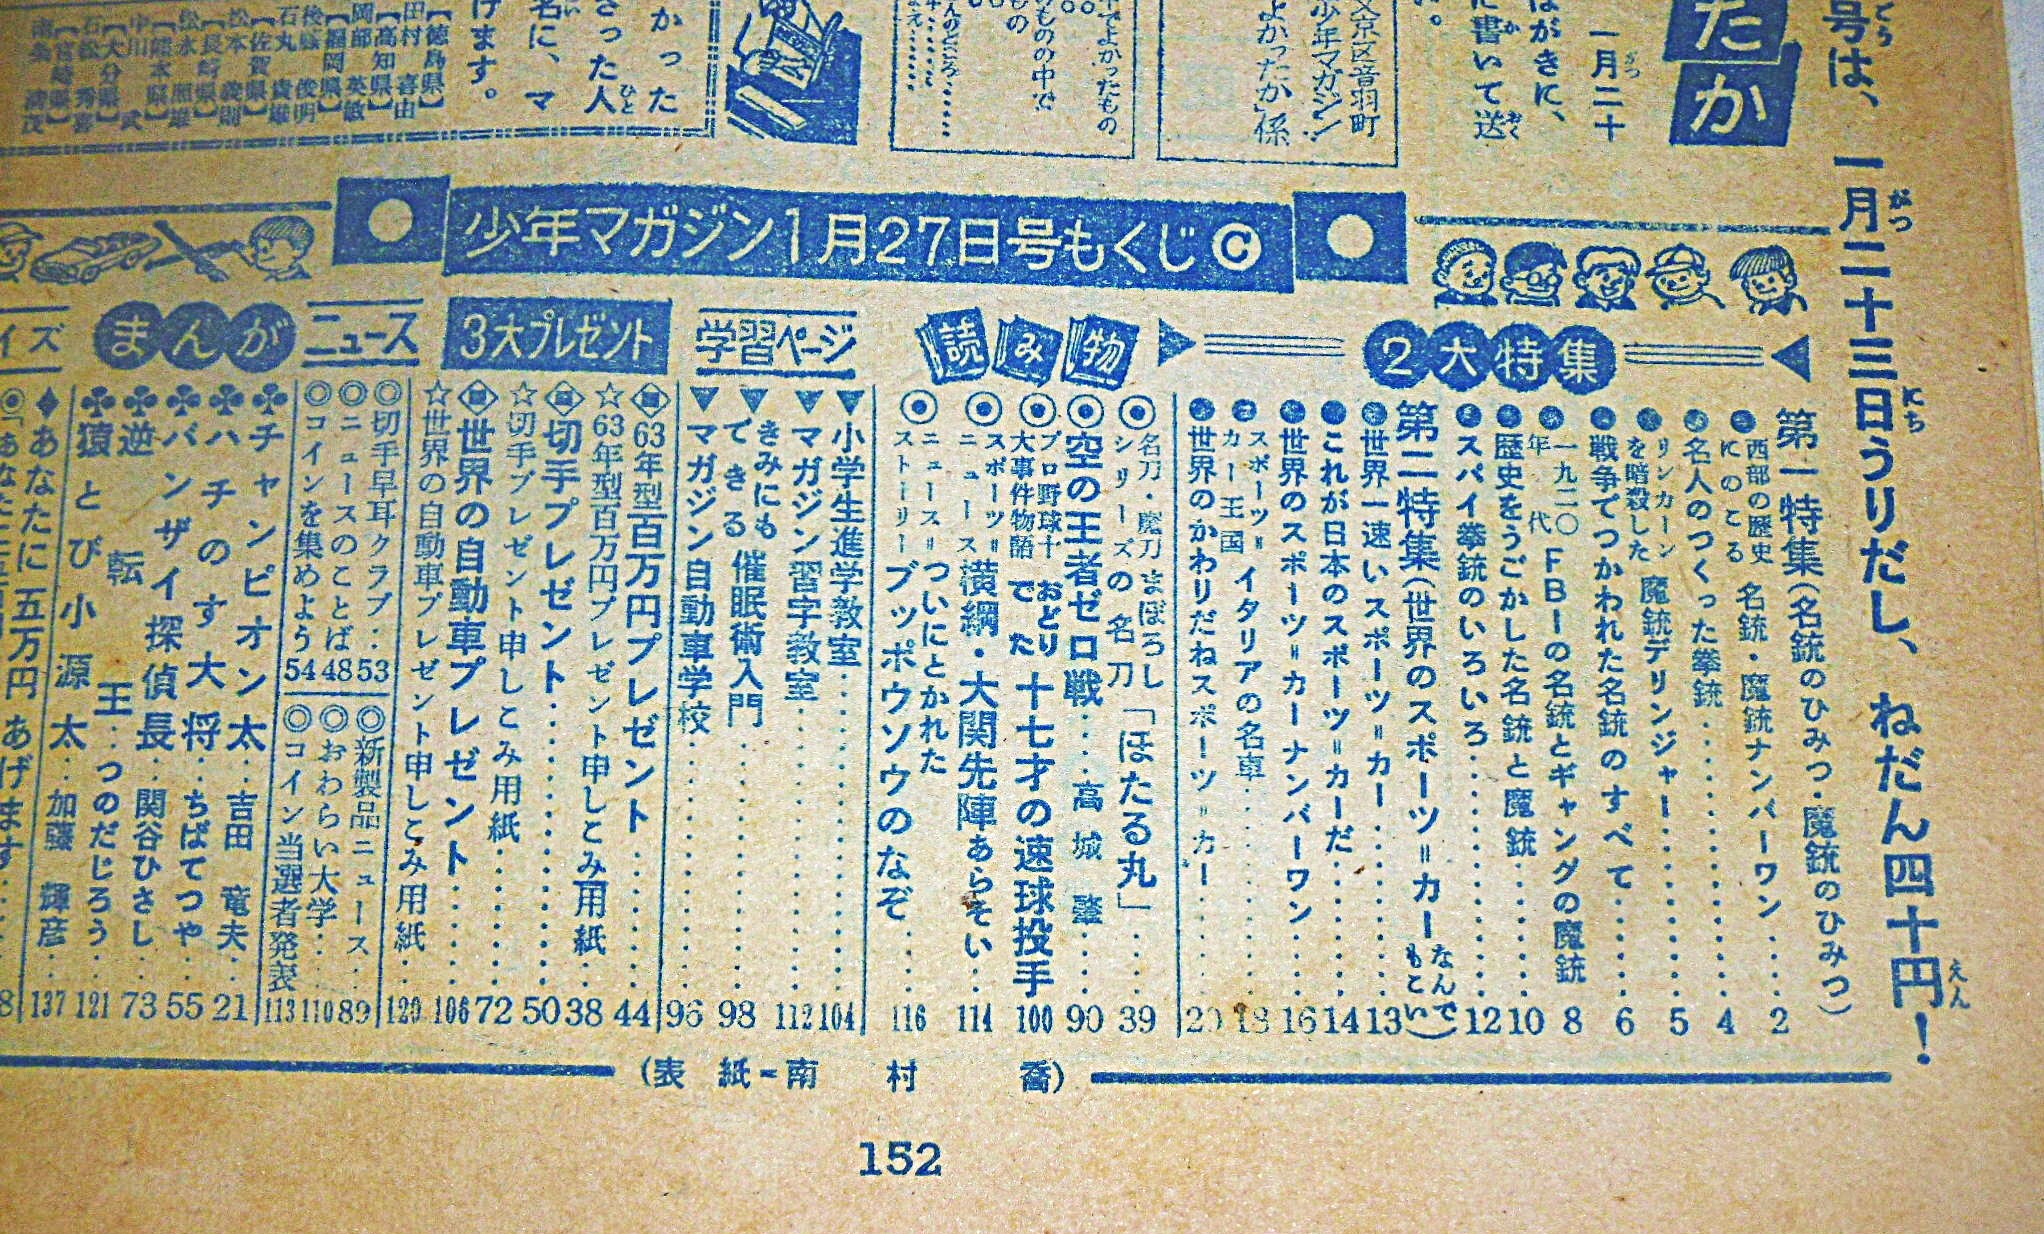 号は、一月二十三日うりだし、ねだん四十円！
たか
はがきに、
一月二十
に書いて送
文京区音羽町
少年マガジン
よかったか」係
中でよかったもの
ものの中で
かった
さった人
名に、マ
げます。
【徳島県】
田村 喜由
【高知県】
岡部 英敏
【福岡県】
後藤 俊明
石丸 貴雄
【佐賀県】
松本 義則
【長崎県】
松永 照雄
【熊本県】
中川 武
【大分県】
石松 秀喜
【宮崎県】
少年マガジン1月27日号もくじ©
2大特集
第一特集（名銃のひみつ・魔銃のひみつ）
西部の歴史にのこる 名銃・魔銃ナンバーワン……2
名人のつくった拳銃……4
リンカーンを暗殺した 魔銃デリンジャー……5
戦争でつかわれた名銃のすべて……6
一九二〇年代 FBIの名銃とギャングの魔銃 8
歴史をうごかした名銃と魔銃……10
スパイ拳銃のいろいろ……12
第二特集（世界のスポーツ＝カー なんでもこい）
世界一速いスポーツ＝カー……13
これが日本のスポーツ＝カーだ……14
世界のスポーツ＝カーナンバーワン……16
スポーツ＝カー王国 イタリアの名車……18
世界のかわりだねスポーツ＝カー……20
読み物
名刀・魔刀シリーズ まぼろしの名刀「ほたる丸」……39
空の王者ゼロ戦……高城 肇……90
プロ野球十大事件物語 おどりでた 十七才の速球投手 100
スポーツ＝ニュース 横綱・大関先陣あらそい……114
ニュース＝ストーリー ついにとかれた ブッポウソウのなぞ……116
学習ページ
▼小学生進学教室……104
▼マガジン習字教室……112
▼きみにもできる 催眠術入門……98
▼マガジン自動車学校……96
3大プレゼント
63年型百万円プレゼント……44
☆63年型百万円プレゼント申しこみ用紙……38
切手プレゼント……50
☆切手プレゼント申しこみ用紙……72
世界の自動車プレゼント……106
☆世界の自動車プレゼント申しこみ用紙……120
ニュース
◎切手早耳クラブ……53
◎ニュースのことば 48
◎コインを集めよう 54
◎新製品ニュース……89
◎おわらい大学……110
◎コイン当選者発表 113
まんが
♣チャンピオン太……吉田 竜夫……21
♣ハチのす大将……ちばてつや……55
♣バンザイ探偵長……関谷ひさし……73
♣逆転王……つのだじろう……121
♣猿とび小源太……加藤 輝彦……137
イズ
♦あなたに五万円あげます……8
（表紙＝南村 喬）
152